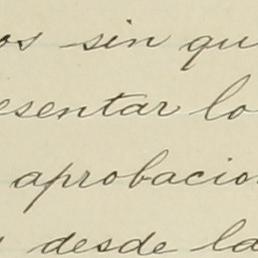 os sin qu
esentar lo
aprobacio
desde la